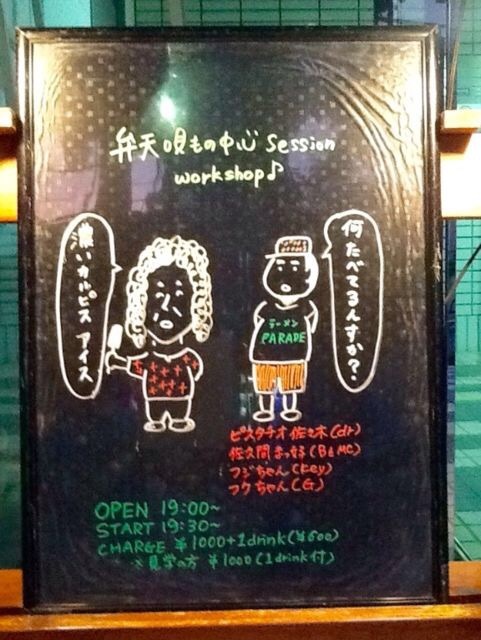 弁天唄もの中心 Session
workshop♪
何たべてるんすか?
濃いカルピスアイス
ラーメン
PARADE
ピスタチオ佐々木(dr)
佐久間まっ好(B&MC)
フジちゃん(key)
フクちゃん(G)
OPEN 19:00~
START 19:30~
CHARGE ¥1000+1drink(¥600)
※見学の方 ¥1000(1drink付)